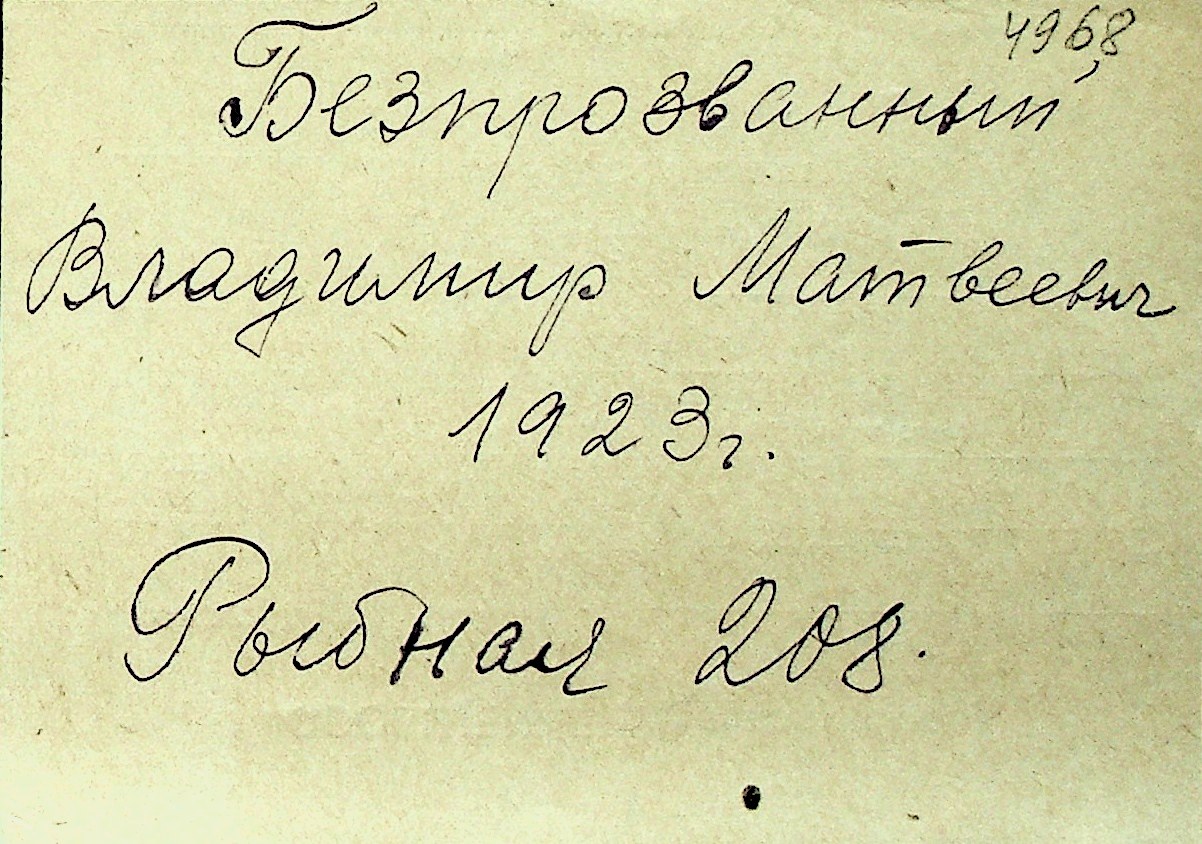 4968
Безпрозванный
Владимир Матвеевич
1923г.
Рыбная 208.